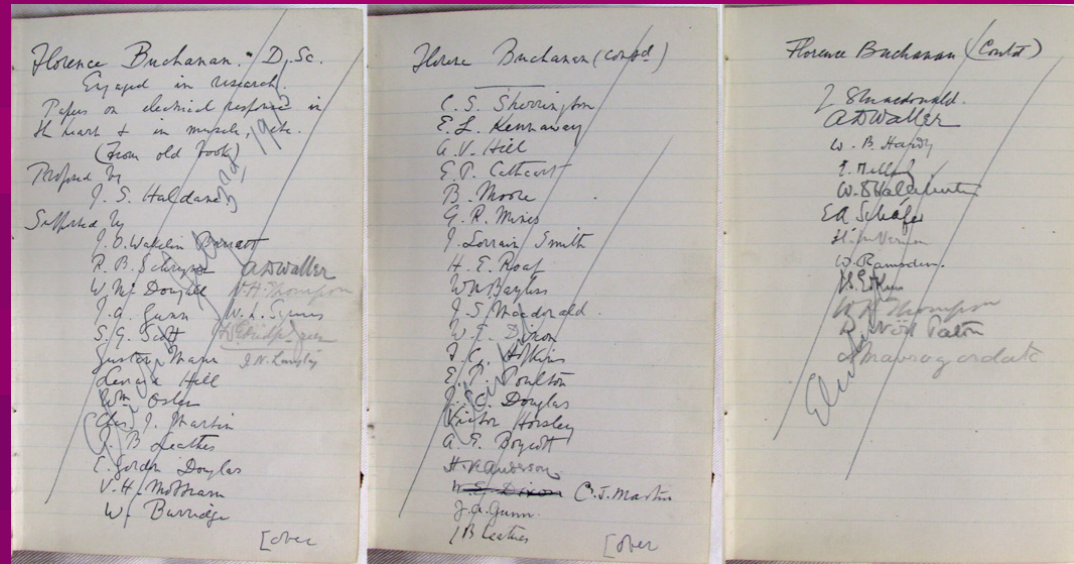 Florence Buchanan. D.Sc.
Engaged in research.
Papers on electrical response in
the heart & in muscle, etc.
(From old book)
Proposed by
J. S. Haldane
Supported by
J. O. Wakelin Barratt
R. B. Schryver A D Waller
W. McDougall W. H. Thompson
J. A. Gunn W. L. Symes
S. G. Scott
Gustav Mann J. N. Langley
Leonard Hill
Wm Osler
Chas. J. Martin
J. B Leathes
C. Gordon Douglas
V. H. Mottram
W. Burridge
[over
Florence Buchanan (contd)
C. S. Sherrington
E. L. Kennaway
A. V. Hill
E. P. Cathcart
B. Moore
G. R. Mines
J. Lorrain Smith
H. E. Roaf
W M Bayliss
J. S. Macdonald.
W. E. Dixon
F. G. Hopkins
E. P. Poulton
C. Douglas
Victor Horsley
A. E. Boycott
H. K. Anderson
W. E. Dixon C. J. Martin
J. A. Gunn.
J B Leathes
[over
Florence Buchanan (Contd)
J S Macdonald.
A D Waller
W. B. Hardy
E. Mellanby
W. D Halliburton
E A Schäfer
H. M Vernon
W. Ramsden.
J. S. Edkins
W H Thompson
D. Noël Paton
A Mavrogordato
Elected